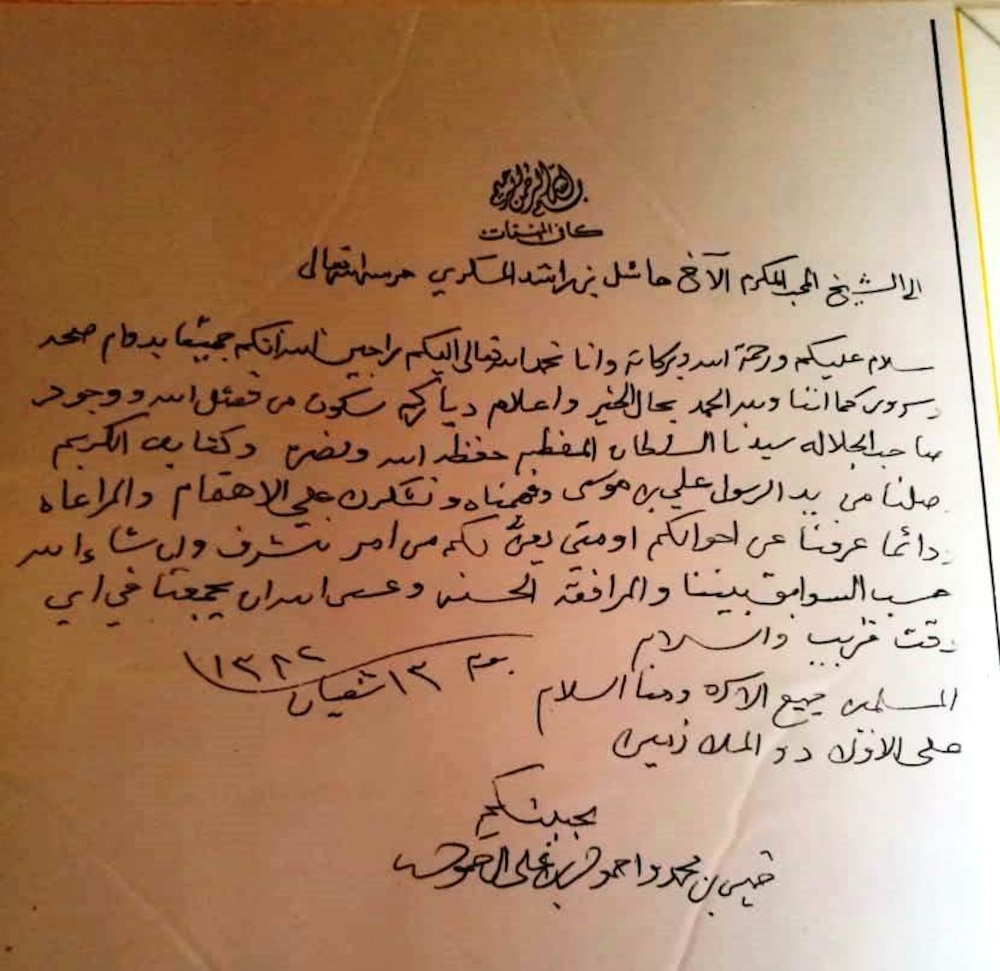 بسم الله الرحمن الرحيم
كافي المهمات
الى الشيخ المحب المكرم الآخ هاشل بن راشد المسكري حرسه الله تعالى
سلام عليكم ورحمة الله وبركاته وانا نحمد الله تعالى اليكم راجين الله انكم جميعا بدوام صحه
وسرور كما اننا ولله الحمد بحال الخير واعلام دياركم سكون من فضل الله ووجود
صاحب الجلاله سيدنا السلطان المعظم حفظه الله ونصره وكتابك الكريم
وصلنا من يد الرسول علي بن موسى وفهمناه ونشكرك على الاهتمام والمراعاه
ودائما عرفنا عن احوالكم او متى يعن لكم من امر نتشرف وان شاء الله
حسب السوابق بيننا والمرافقة الحسنه وعسى الله ان يجمعنا في اي
وقت قريب والسلام
يوم ١٣ شعبان ١٣٨٢
المسلمين جميع الاكره ومنا السلام
على الاخوان والملازمين
محبكم
بن محمد واحمد علي